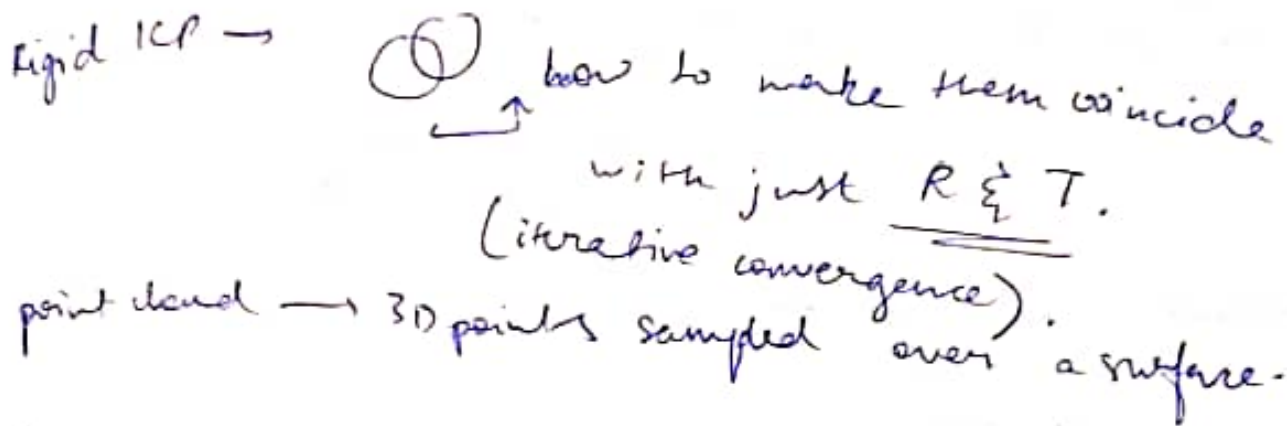 Rigid ICP → how to make them coincide
with just R & T.
(iterative convergence).
point cloud → 3D points sampled over a surface.